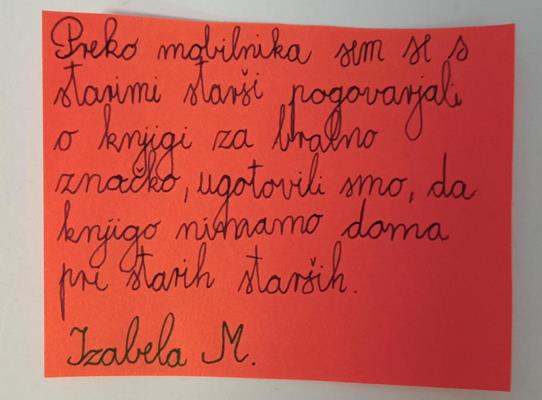 Preko mobilnika sem se s
starimi starši pogovarjali
o knjigi za bralno
značko, ugotovili smo, da
knjigo nimamo doma
pri starih starših.
Izabela M.